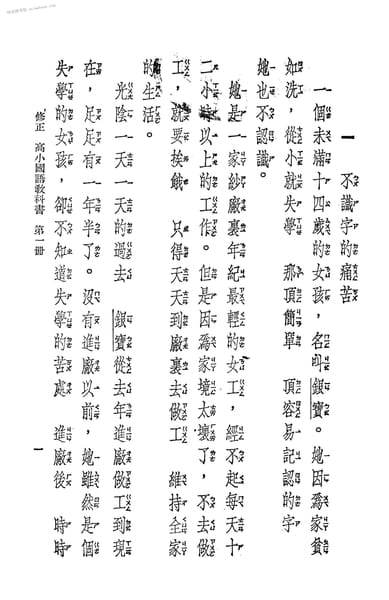 一 不識字的痛苦
一個未滿十四歲的女孩，名叫銀寶。她因爲家貧
如洗，從小就失學 那頂簡單 頂容易記認的字
她也不認識。
她是一家紗廠裏年紀最輕的女工，經不起每天十
二小時以上的工作。但是因爲家境太壞了，不去做
工，就要挨餓 只得天天到廠裏去做工 維持全家
的生活。
光陰一天一天的過去 銀寶從去年進廠做工到現
在，足足有一年半了。沒有進廠以前，她雖然是個
失學的女孩，卻不知道失學的苦處 進廠後 時時
修正 高小國語教科書 第一冊 一